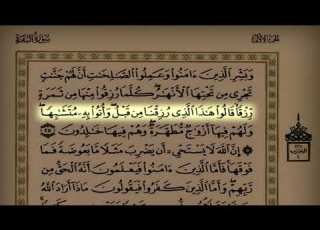 سورة البقرة
الجزء الأول
وَبَشِّرِ الَّذِينَ ءَامَنُوا وَعَمِلُوا الصَّٰلِحَٰتِ أَنَّ لَهُمْ جَنَّٰتٍ
تَجْرِى مِن تَحْتِهَا الْأَنْهَٰرُ كُلَّمَا رُزِقُوا مِنْهَا مِن ثَمَرَةٍ
رِّزْقًا قَالُوا هَٰذَا الَّذِى رُزِقْنَا مِن قَبْلُ وَأُتُوا بِهِ مُتَشَٰبِهًا
وَلَهُمْ فِيهَا أَزْوَٰجٌ مُّطَهَّرَةٌ وَهُمْ فِيهَا خَٰلِدُونَ ٢٥
إِنَّ اللَّهَ لَا يَسْتَحْىِ أَن يَضْرِبَ مَثَلًا مَّا بَعُوضَةً فَمَا
فَوْقَهَا فَأَمَّا الَّذِينَ ءَامَنُوا فَيَعْلَمُونَ أَنَّهُ الْحَقُّ مِن
رَّبِّهِمْ وَأَمَّا الَّذِينَ كَفَرُوا فَيَقُولُونَ مَاذَا أَرَادَ اللَّهُ